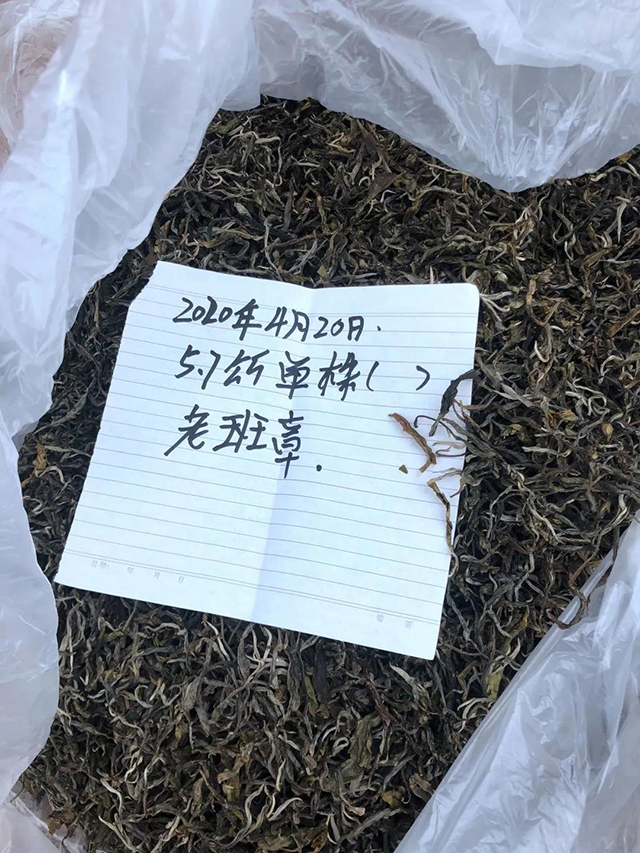 2020年4月20日.
5.7公斤单株( )
老班章.
日期: 年 月 日